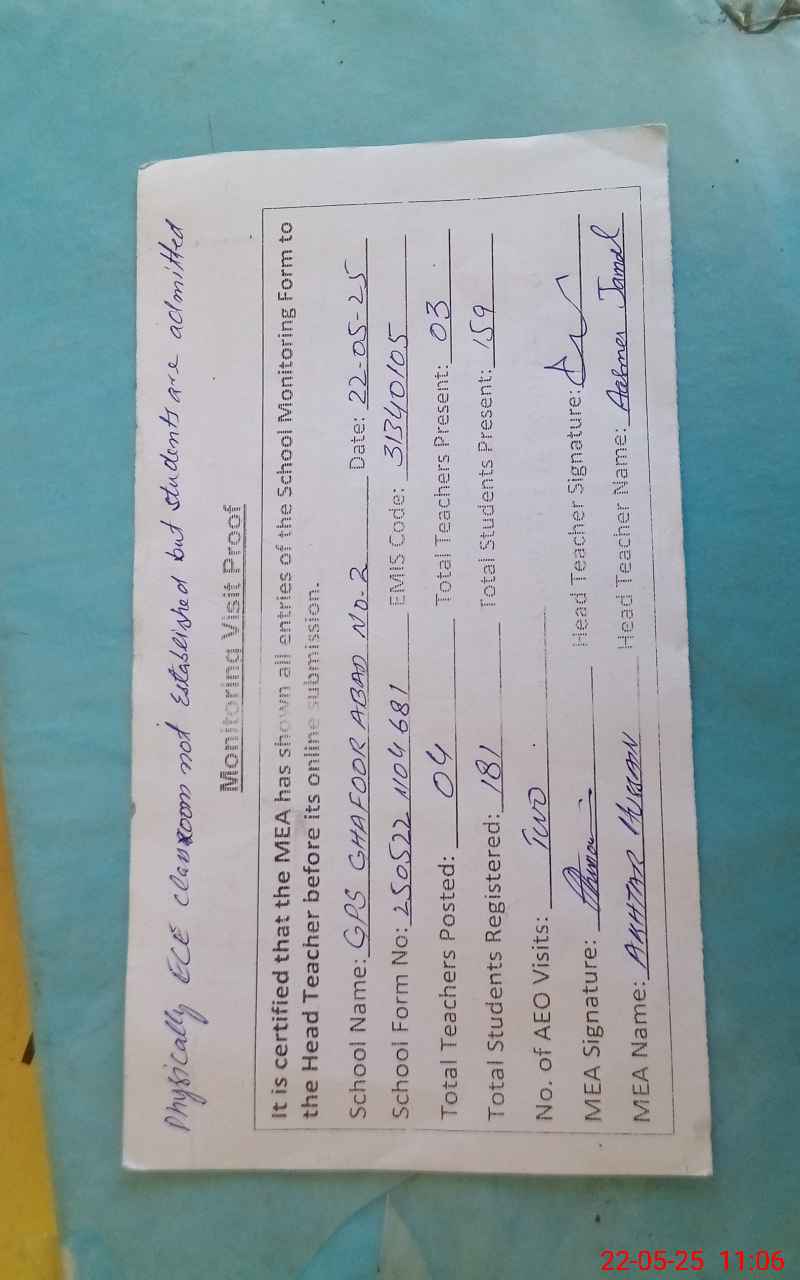 Physically ECE classroom not Established but students are admitted
Monitoring Visit Proof
It is certified that the MEA has shown all entries of the School Monitoring Form to
the Head Teacher before its online submission.
School Name: GPS GHAFOOR ABAD No. 2 Date: 22-05-25
School Form No: 250522 1104681 EMIS Code: 31340105
Total Teachers Posted: 04 Total Teachers Present: 03
Total Students Registered: 181 Total Students Present: 159
No. of AEO Visits: Two
MEA Signature: Head Teacher Signature:
MEA Name: AKHTAR HUSSAIN Head Teacher Name: Jamal
22-05-25 11:06